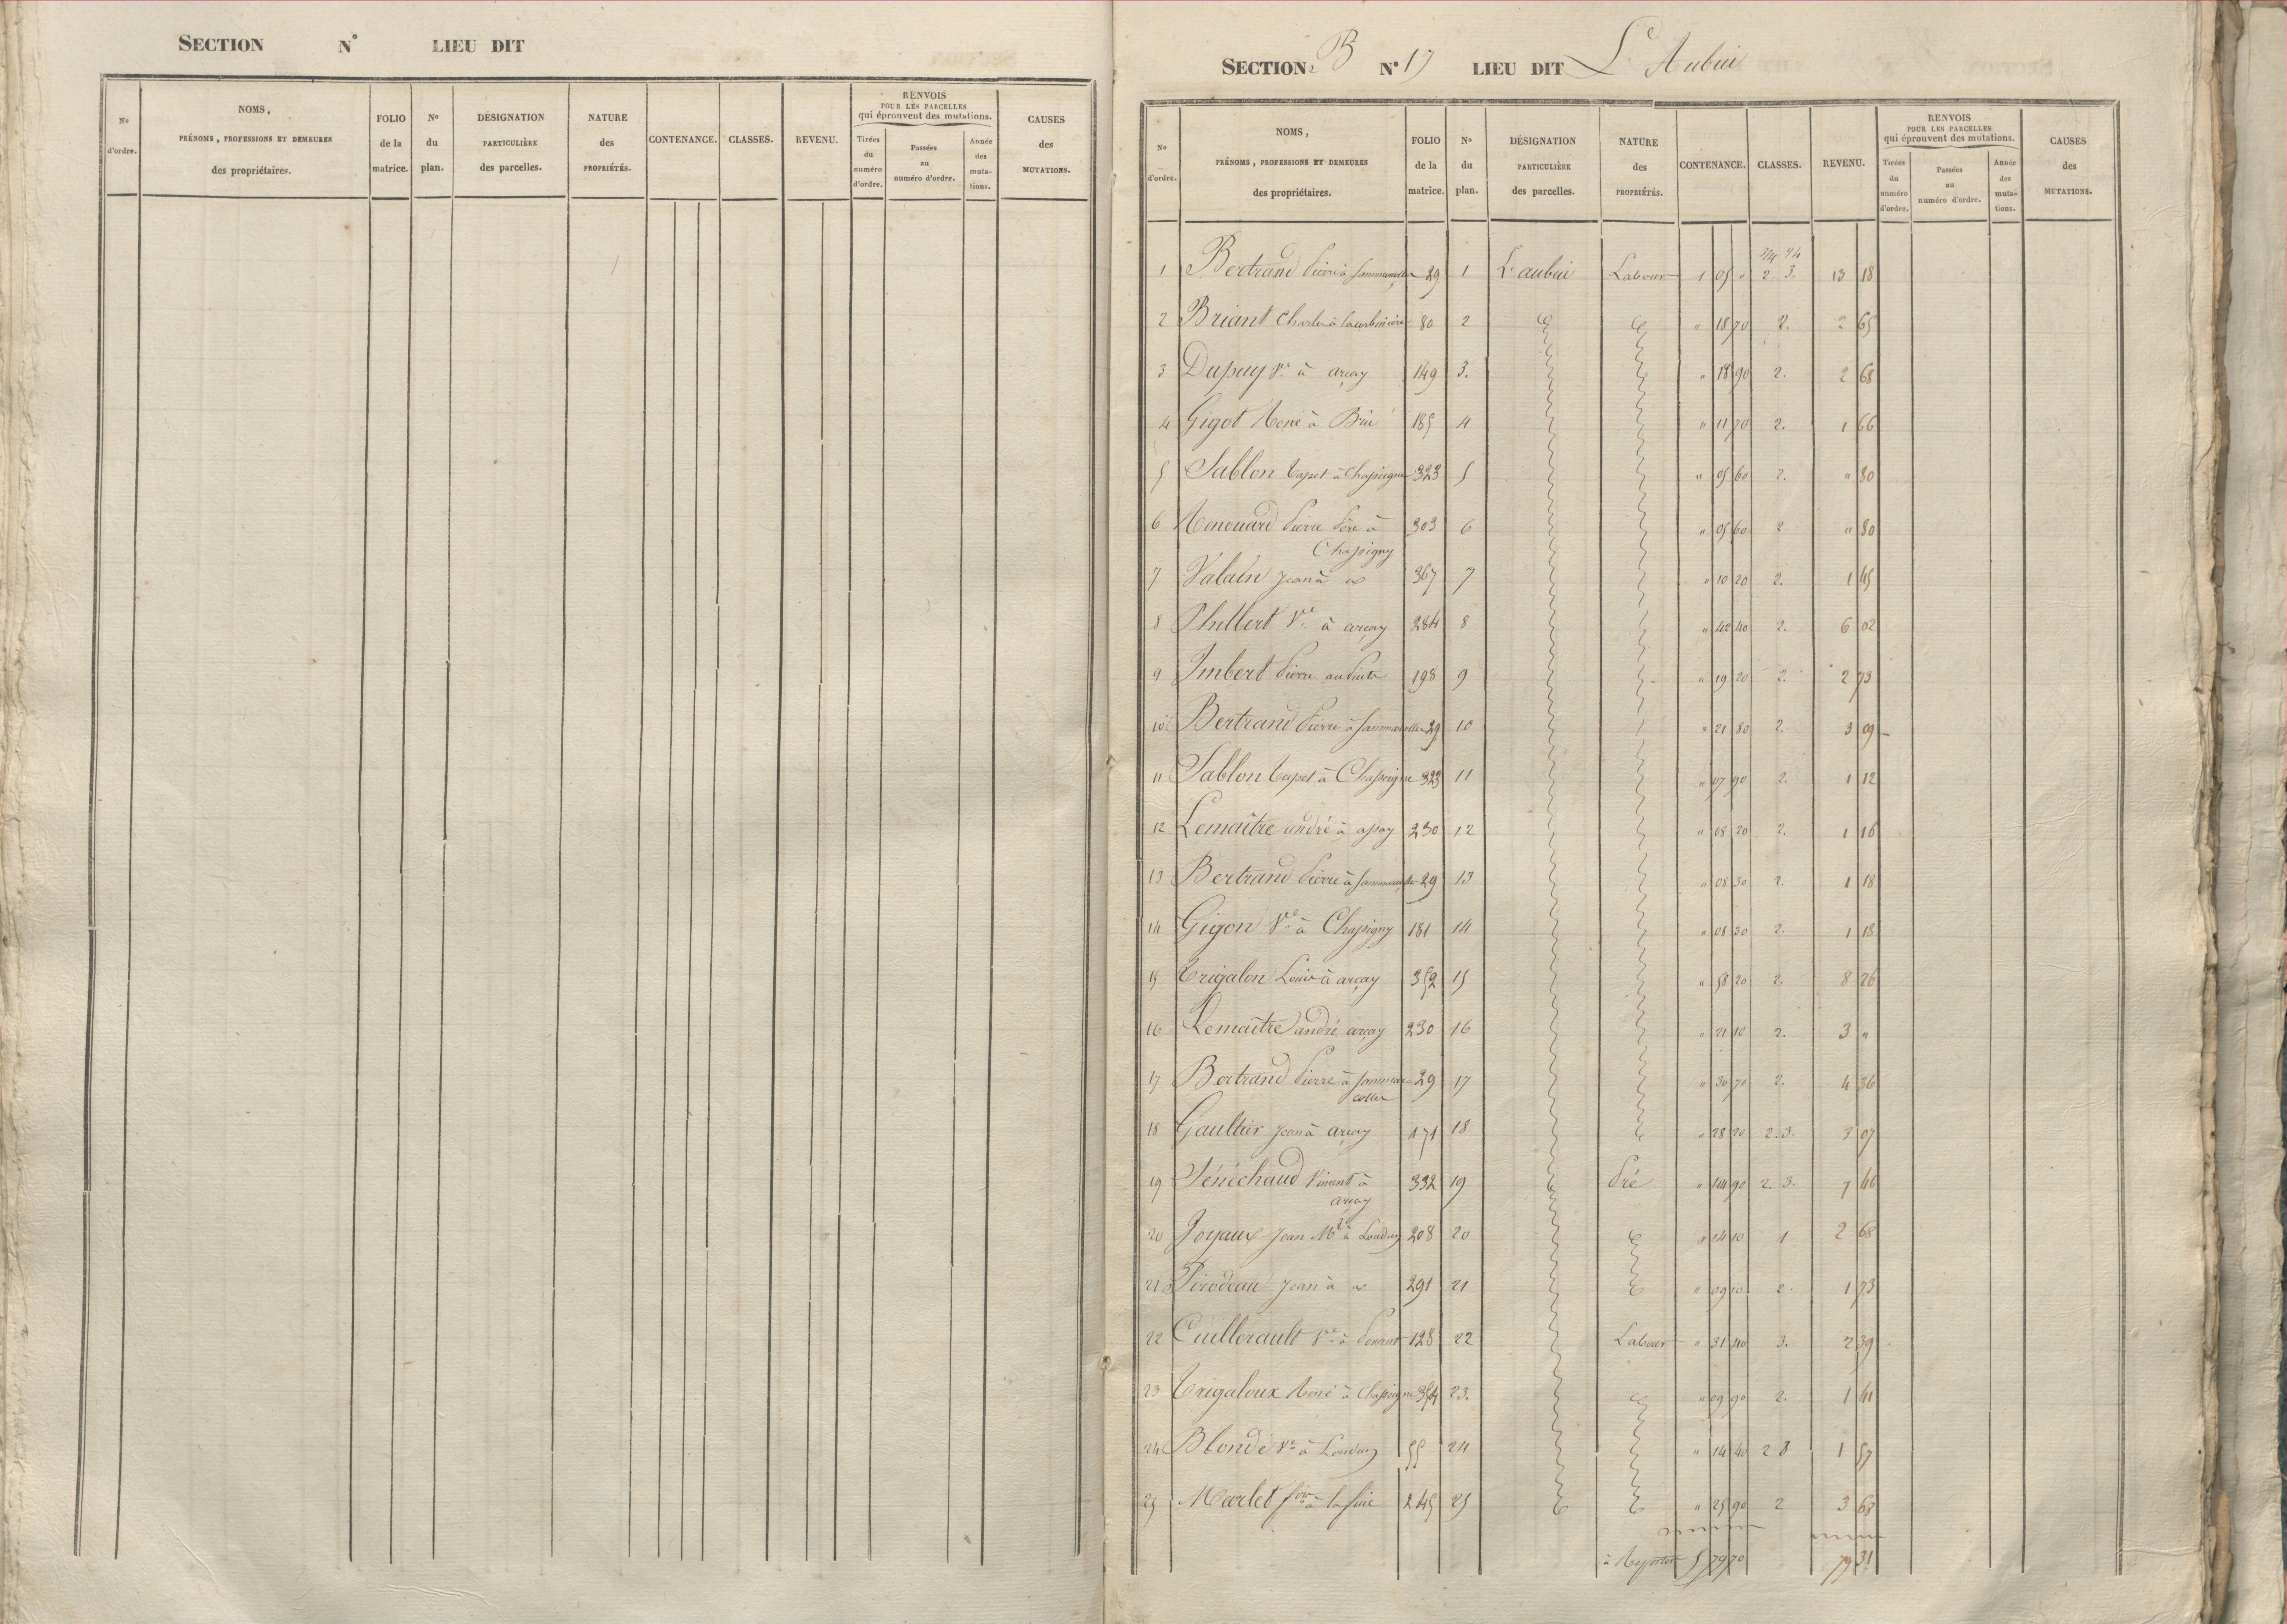 SECTION N° LIEU DIT
N° d'ordre. NOMS, PRÉNOMS, PROFESSIONS ET DEMEURES des propriétaires. FOLIO de la matrice. N° du plan. DÉSIGNATION PARTICULIÈRE des parcelles. NATURE des PROPRIÉTÉS. CONTENANCE. CLASSES. REVENU. RENVOIS POUR LES PARCELLES qui éprouvent des mutations. Tirées du numéro d'ordre. Passées au numéro d'ordre. Année des mutations. CAUSES des MUTATIONS.
SECTION B N° 17 LIEU DIT L'Aubui
N° d'ordre. NOMS, PRÉNOMS, PROFESSIONS ET DEMEURES des propriétaires. FOLIO de la matrice. N° du plan. DÉSIGNATION PARTICULIÈRE des parcelles. NATURE des PROPRIÉTÉS. CONTENANCE. CLASSES. REVENU. RENVOIS POUR LES PARCELLES qui éprouvent des mutations. Tirées du numéro d'ordre. Passées au numéro d'ordre. Année des mutations. CAUSES des MUTATIONS.
1 Bertrand Pierre à 29 1 L'aubui Labour 1 05 " 2. 3. 13 18
2 Briant Charles à 80 2 " 18 70 2. 2 65
3 Dupuy Ve à arçay 149 3. " 18 90 2. 2 68
4 Gigot René à Brie 185 4 " 11 70 2. 1 66
5 Sablon Tapet à Chapigny 323 5 " 05 60 2. " 80
6 Renouard Pierre Père à Chapigny 303 6 " 05 60 2 " 80
7 Valain Jean à 367 7 " 10 20 2. 1 45
8 Philbert Ve à arçay 284 8 " 42 40 2. 6 02
9 Imbert Pierre 198 9 " 19 20 2. 2 73
10 Bertrand Pierre à Sammarcolles 29 10 " 21 80 2. 3 09
11 Sablon Tapet à Chapigny 323 11 " 07 90 2. 1 12
12 Lemaître andré à 230 12 " 08 20 2. 1 16
13 Bertrand Pierre à 29 13 " 08 30 2. 1 18
14 Gigon Ve à Chapigny 181 14 " 08 30 2. 1 18
15 Trigalon Louis à arçay 352 15 " 58 20 2. 8 26
16 Lemaître andré arçay 230 16 " 21 10 2. 3 "
17 Bertrand Pierre à Sammarcolles 29 17 " 30 70 2. 4 36
18 Gaultier Jean à arçay 171 18 " 28 20 2. 3. 3 07
19 Sénéchaud Vincent à arçay 332 19 Pré " 44 90 2. 3. 7 46
20 Joyaux Jean Md à Loudun 208 20 " 14 10 1 2 68
21 Pirodeau Jean à 291 21 " 09 10 2. 1 73
22 Cuillerault Ve à 128 22 Labour " 31 40 3. 2 39
23 Trigaloux René à Chapigny 354 23. " 09 90 2. 1 41
24 Blondé Ve à Loudun 55 24 " 14 40 2 3 1 57
25 Marlet à 245 25 " 25 90 2 3 68
à Reporter 5 79 70 79 31